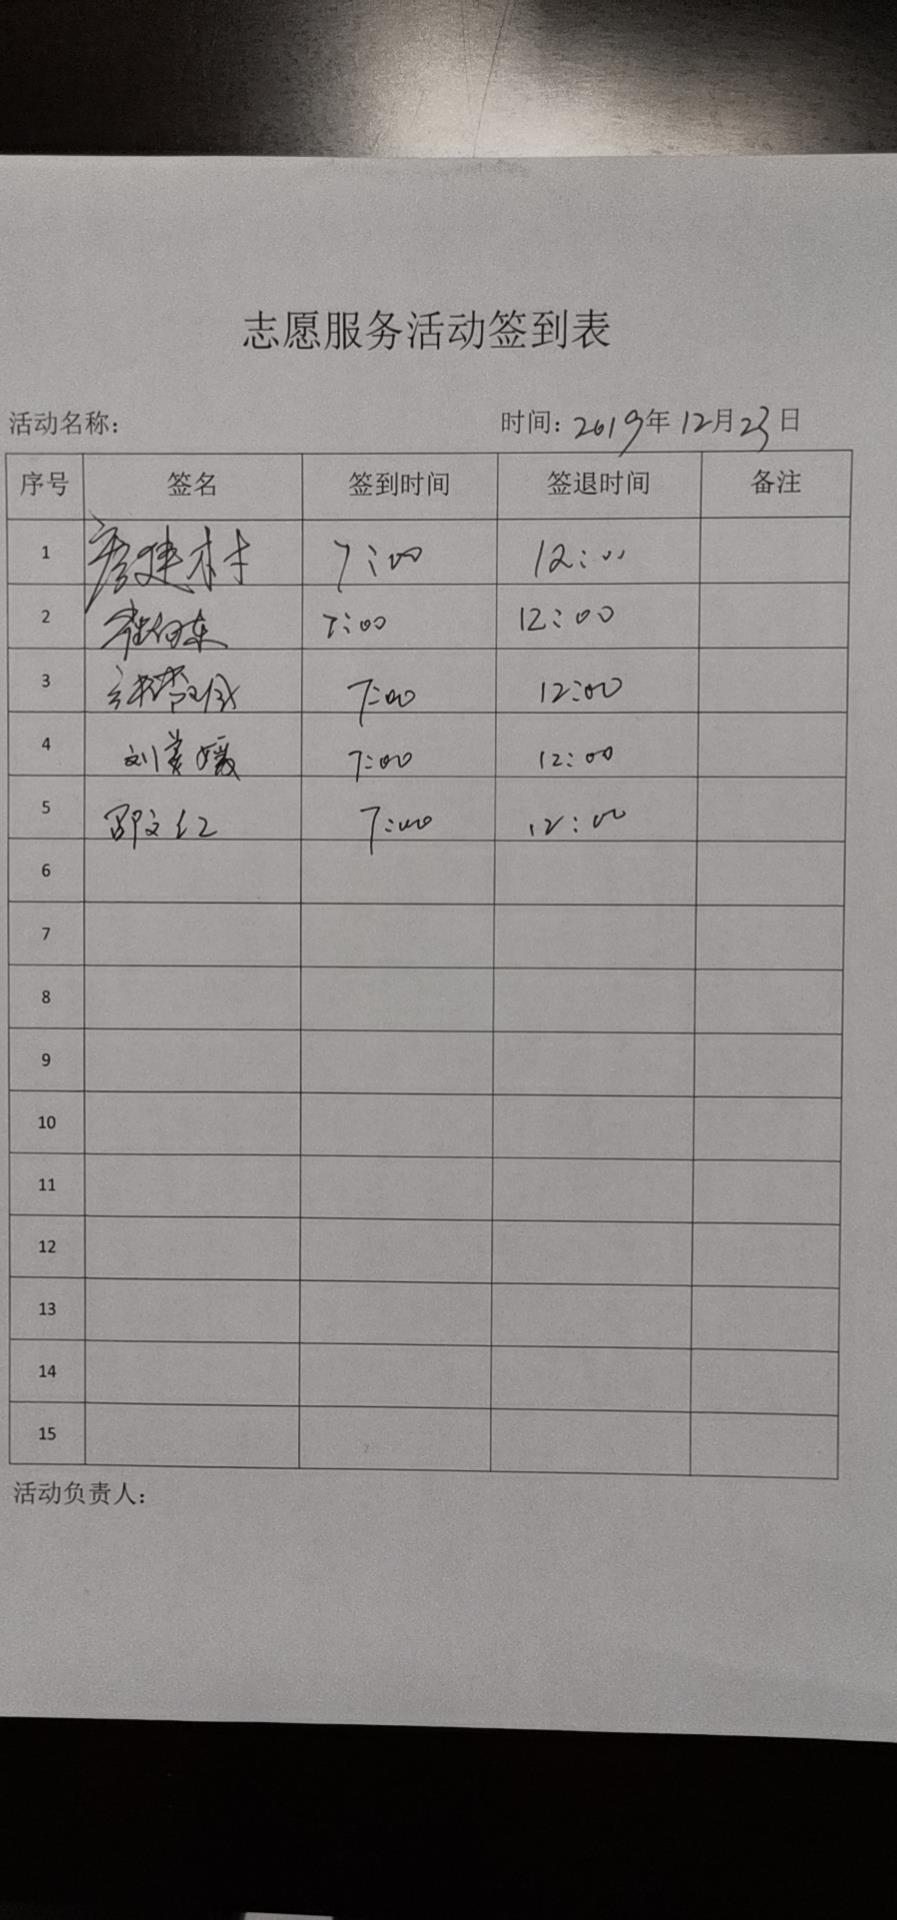 志愿服务活动签到表
活动名称： 时间：2019年12月23日
序号 签名 签到时间 签退时间 备注
1 建村 7:00 12:00
2 7:00 12:00
3 7:00 12:00
4 刘 媛 7:00 12:00
5 邵文仁 7:00 12:00
6
7
8
9
10
11
12
13
14
15
活动负责人：